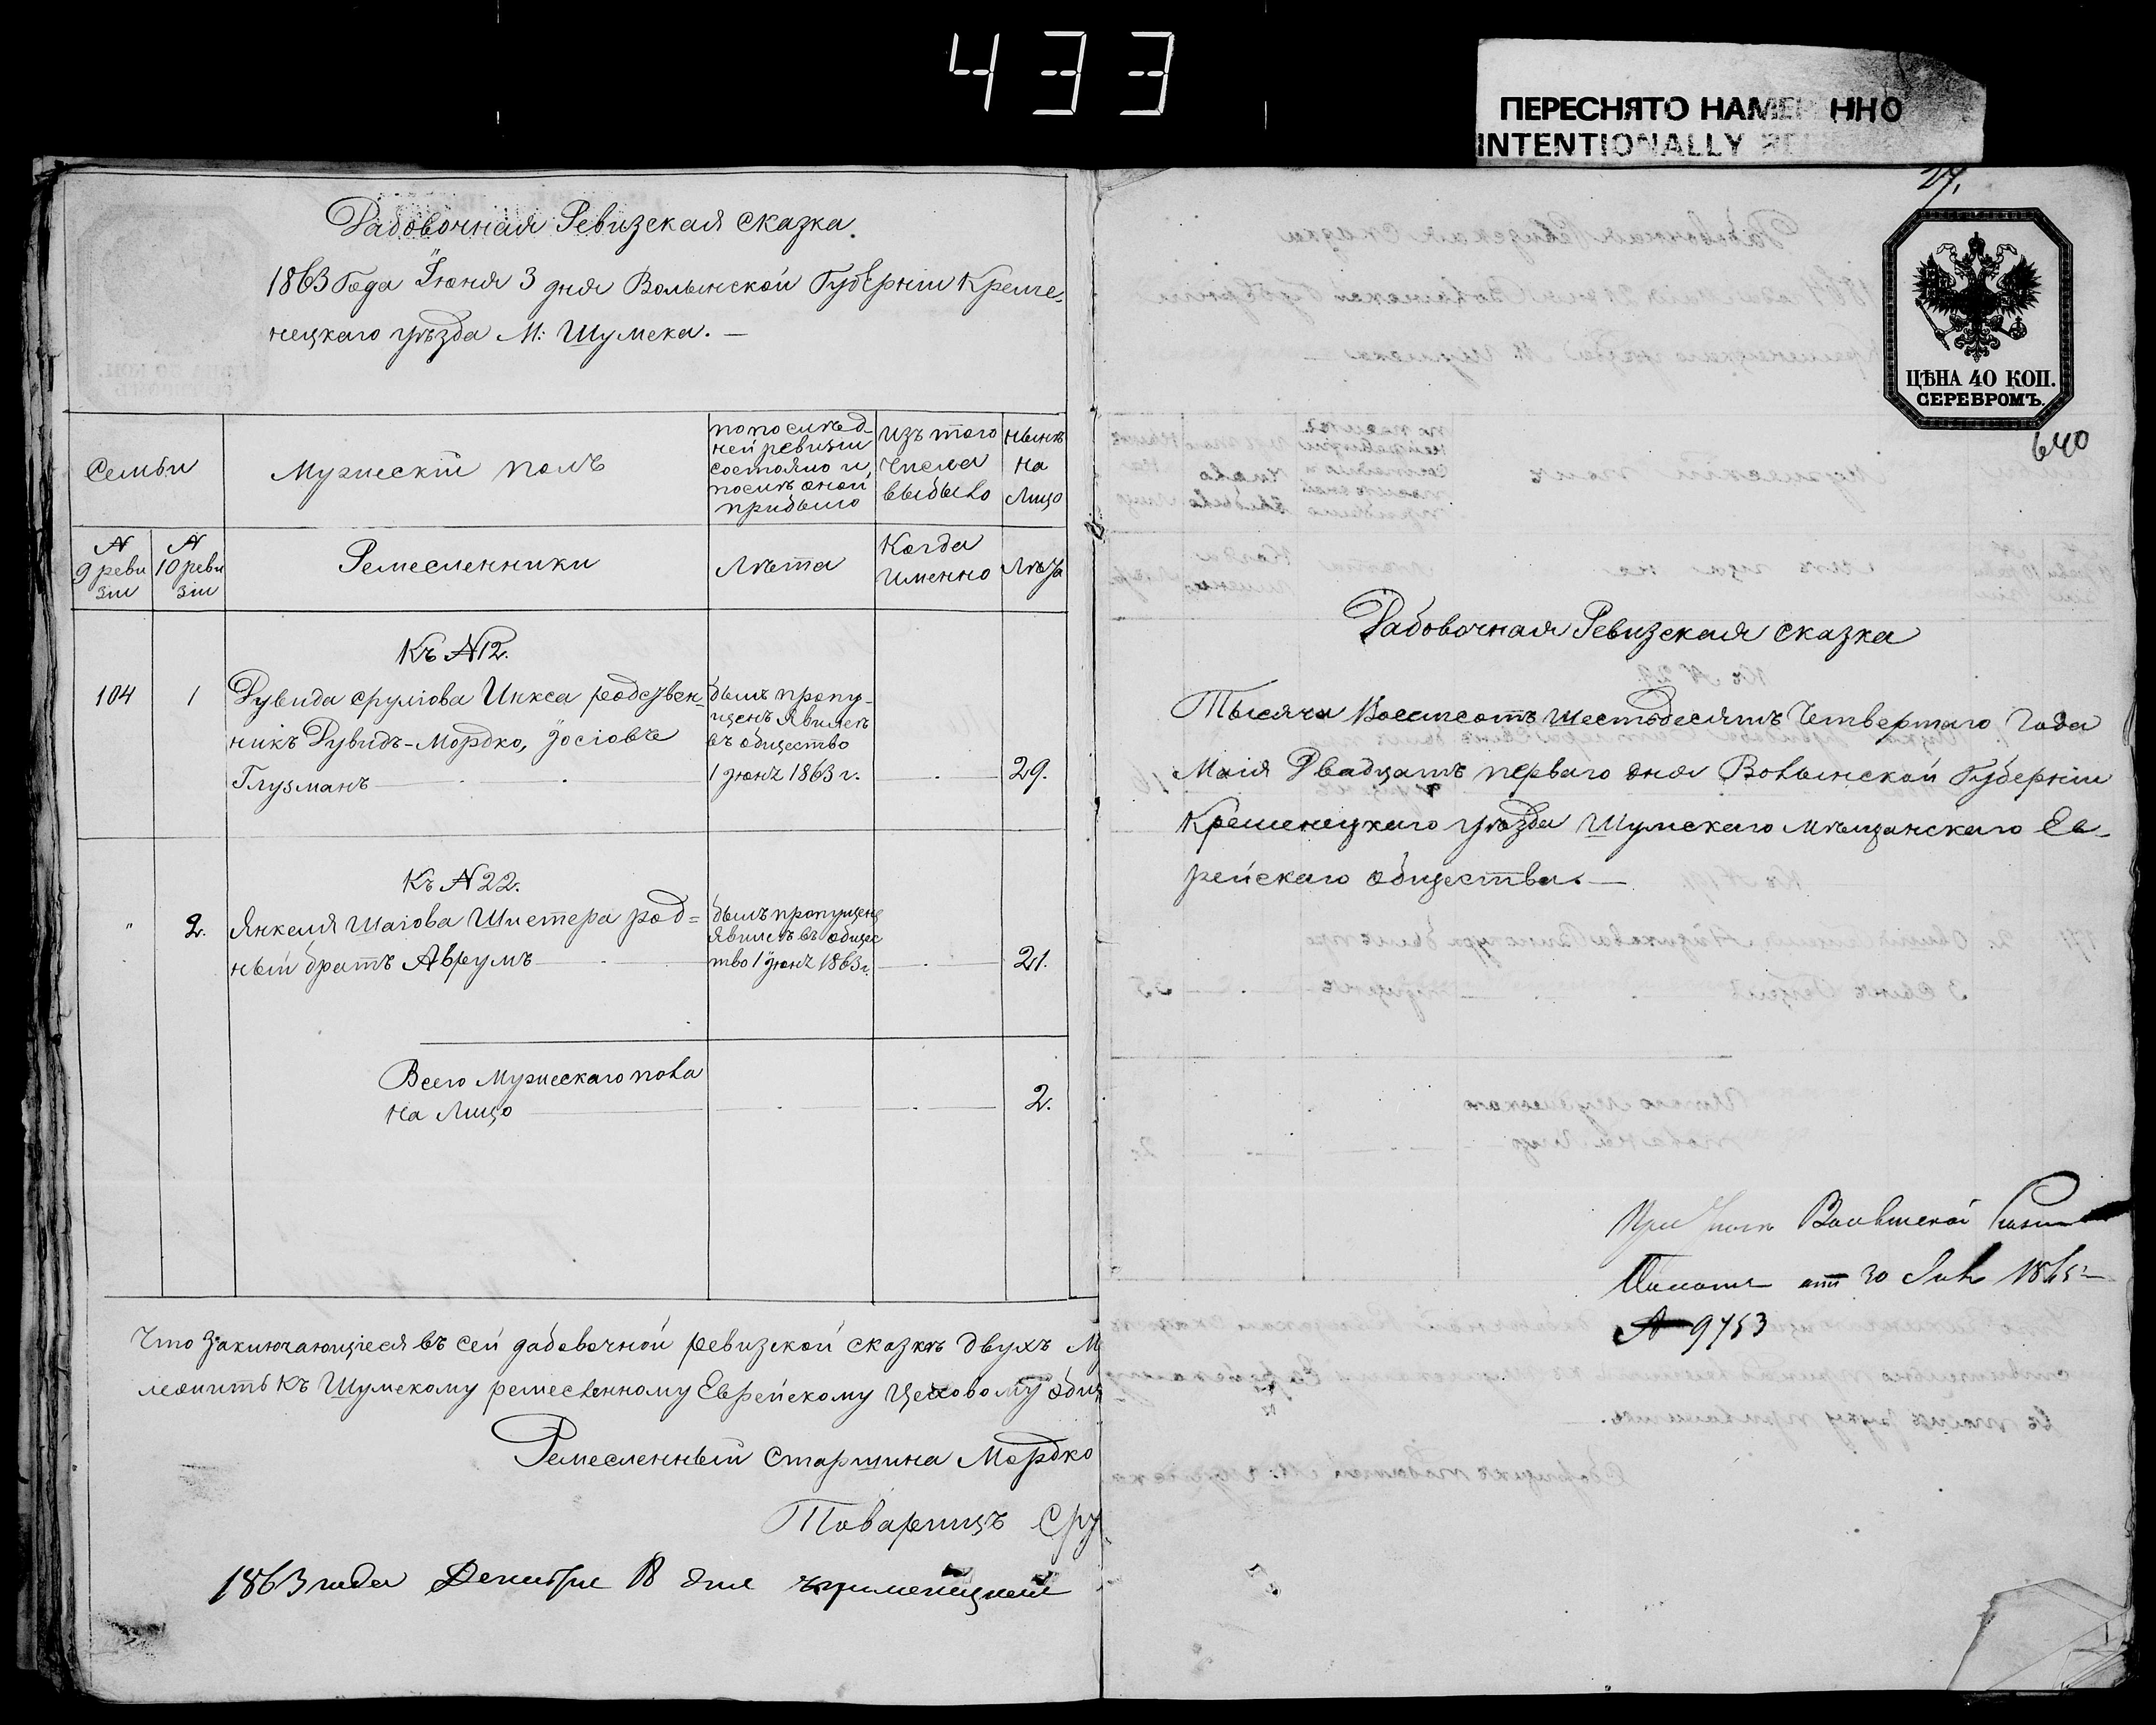 433
ПЕРЕСНЯТО НАМЕР ННО
INTENTIONALLY
Дабовочная Ревизская сказка.
1863 Года Іюня 3 дня Волынской Губерніи Креме-
нецкаго уѣзда М: Шумска. —
Семьи
Мужескій полъ
по послѣд-
ней ревизіи
состояло и
послѣ оной
прибыло
Изъ того
числа
выбыло
нынѣ
на
Лицо
№
9 реви
зіи
№
10 реви
зіи
Ремесленники
Лѣта
Когда
именно
Лѣта
Къ №12.
104 1 Дувида срулiова Инкса родствен-
никъ Дувидъ-Мордко, Іосiовъ
Глузманъ
былъ пропу-
щенъ явился
въ общество
1 Іюня 1863 г.
29.
Къ №22.
" 2. Янкеля Шаiова Шистера род=
ный братъ Аврумъ
былъ пропущенъ
явился въ общес
тво 1 Іюня 1863 г.
21.
Всего Мужескаго пола
на Лицо
2.
Что заключающіеся въ сей дабовочной ревизской сказкѣ двухъ М
лежитъ къ Шумскому ремесленному Еврейскому Цеховому общ
Ремесленный старшина Мордко
Товарищъ Сру
1863 года Декабря 18 дня
27.
ЦѢНА 40 КОП.
СЕРЕБРОМЪ.
640
Дабовочная Ревизская сказка
Тысяча Восемсотъ шестьдесятъ Четвертаго Года
Маія Двадцать перваго дня Волынской Губерніи
Кременецкаго уѣзда Шумскаго мѣщанскаго Ев-
рейскаго общества. —
При Волынской
Палаты отъ 30 1865
№ 9753